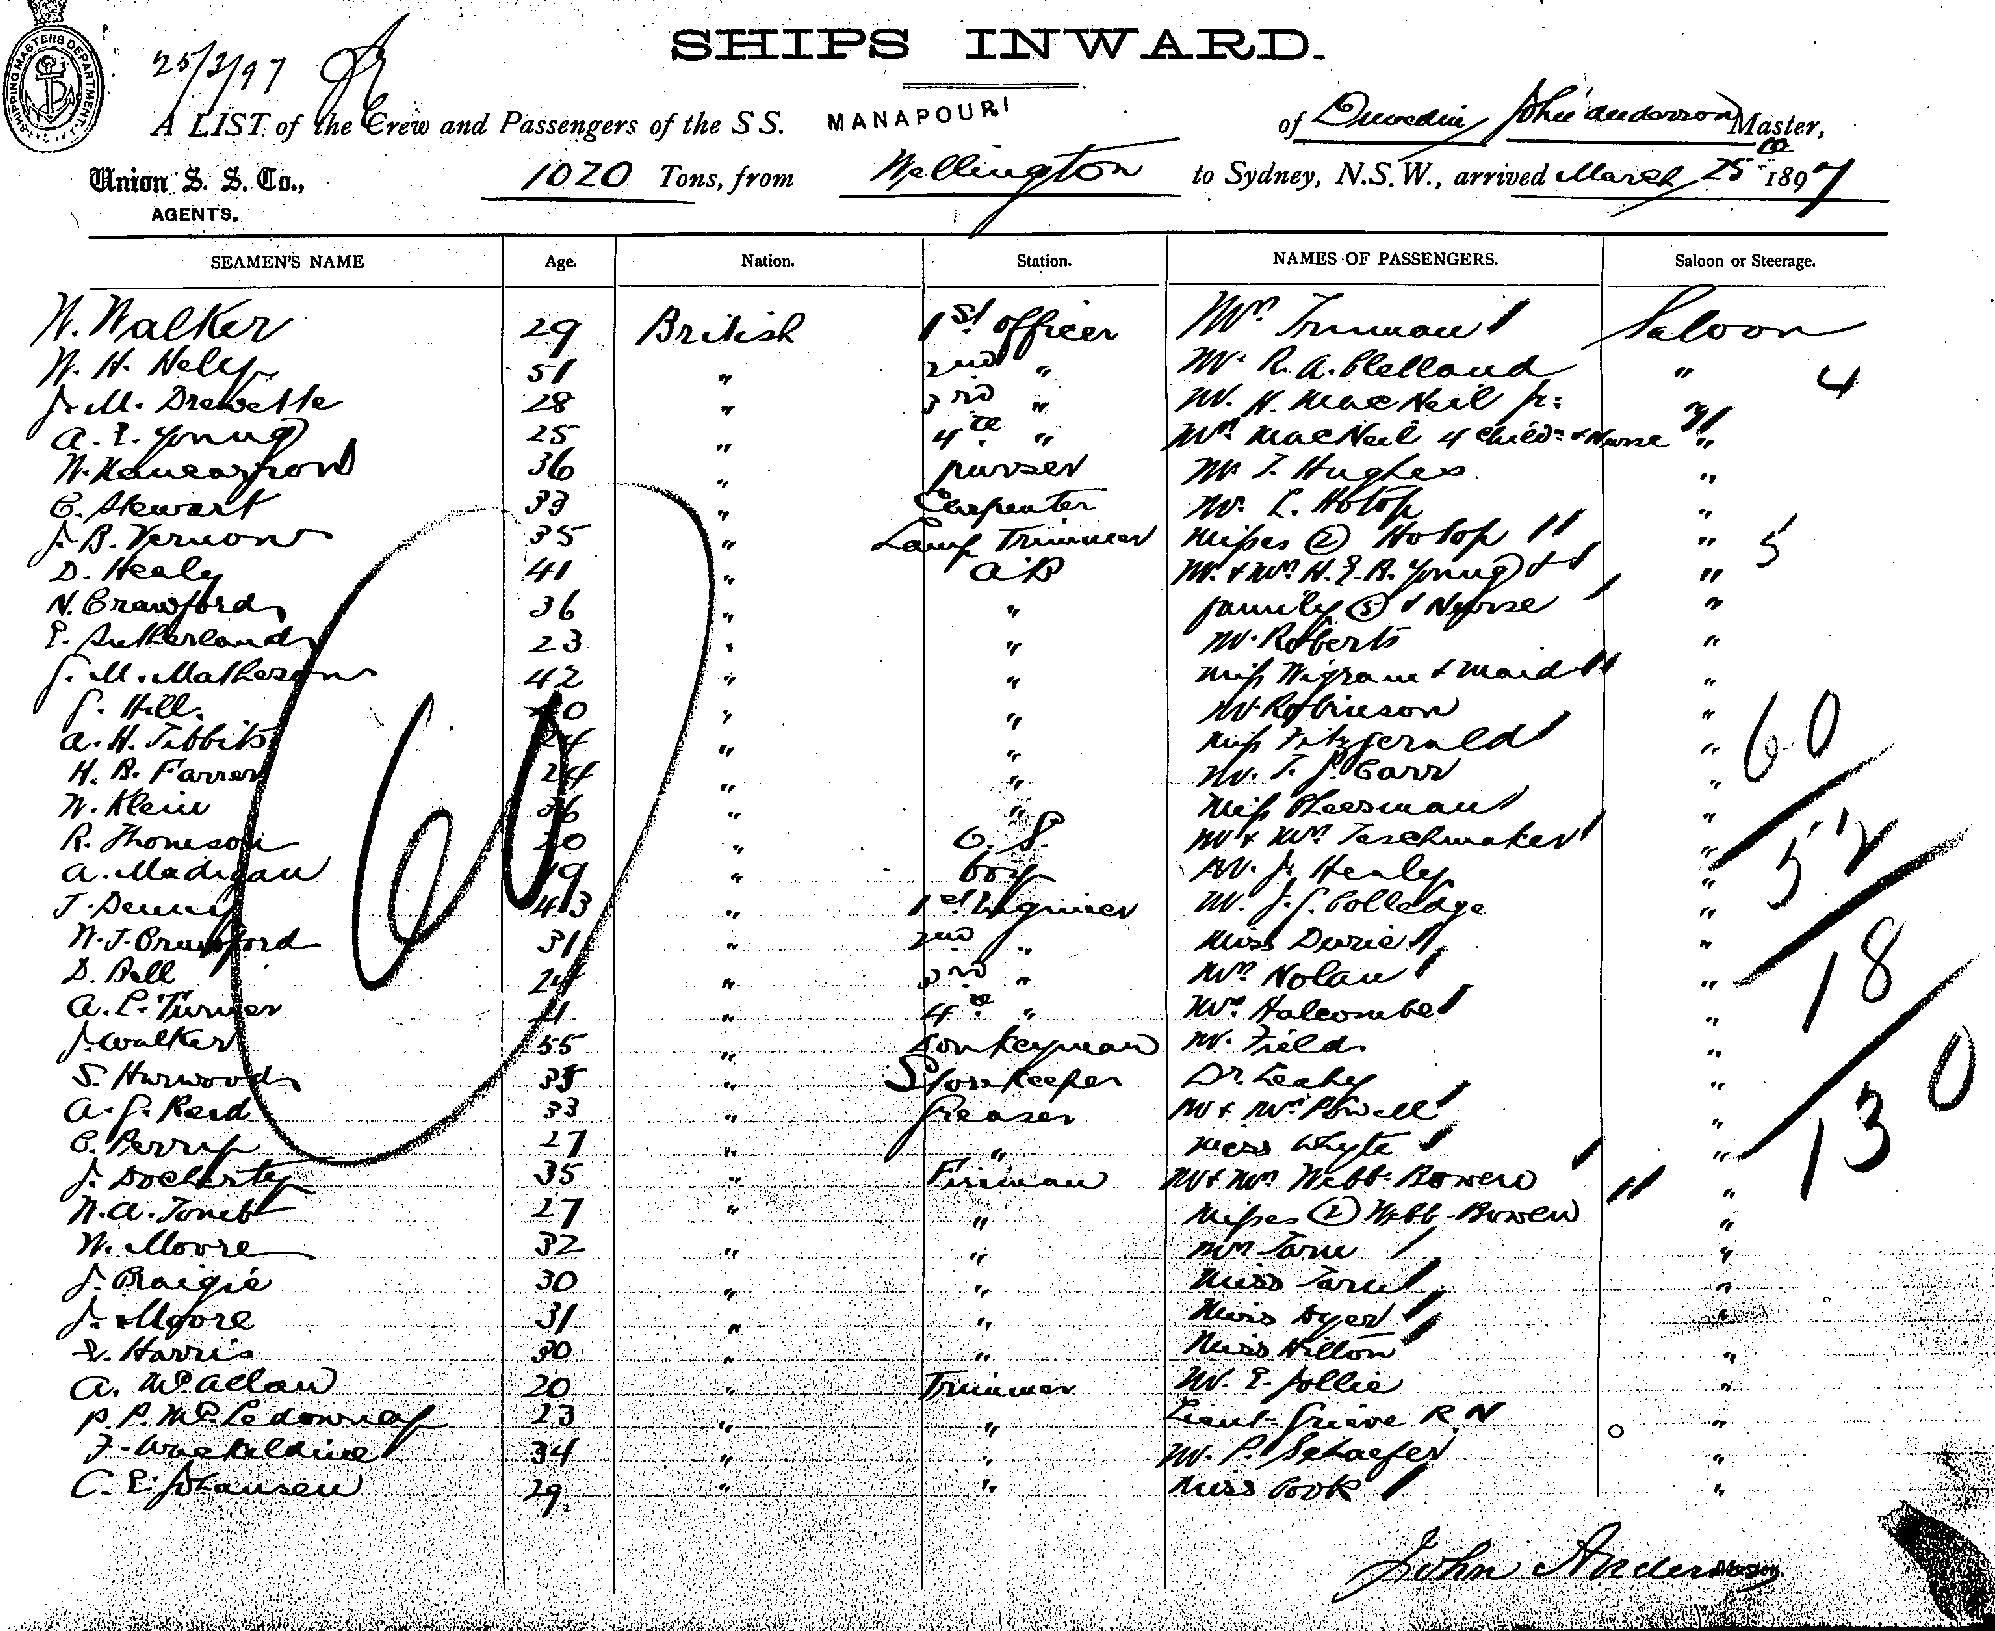 SHIPS INWARD.
25/3/97
A LIST of the Crew and Passengers of the S S. MANAPOURI of Dunedin John Anderson Master,
Union S. S. Co., 1020 Tons, from Wellington to Sydney, N.S.W., arrived March 25 1897
AGENTS.
SEAMEN'S NAME Age. Nation. Station. NAMES OF PASSENGERS. Saloon or Steerage.
W. Walker 29 British 1st officer Mrs Truman Saloon
W. H. Hely 51 " 2nd " Mr. R. A. Clelland " 4
J. M. Drewette 28 " 3rd " Mr. H. MacNeil Jr: "
A. E. Young 25 " 4th " Mrs MacNeil 4 Childn & Nurse "
W. 36 " purser Mr T. Hughes "
C. Stewart 33 " Carpenter Mr. L. Hotop "
J. B. Vernon 35 " Lamp Trimmer Misses (2) Hotop " 5
D. Healy 41 " AB Mr. & Mrs H. E. B. Young & "
N. Crawford 36 " " family (5) & Nurse "
E. Sutherland 23 " " Mr. Roberts "
G. M. Matheson 42 " " Miss Wigram & Maid "
G. Hill. " " Mr Robinson "
A. H. Tibbits 24 " " Miss Fitzgerald " 60
H. B. Farrer 24 " " Mr. T. J. Carr "
W. Klein 36 " " Miss Cheesman "
R. Thomson 20 " O. S. Mr & Mrs Teschmaker " 52
A. Madigan 19 " boy Mr. J. Henly "
T. Denny 43 " 1st Engineer Mr. J. G. Colledge "
W. J. Crawford 31 " 2nd " Miss Durie "
D. Bell 24 " 3rd " Mrs Nolan " 18
A. L. Turner 21 " 4th " Mrs Halcombe "
J. Walker 55 " Donkeyman Mr. Field "
S. Harwood 35 " Storekeeper Dr. Leahy "
A. G. Reid 33 " Greaser Mr & Mrs Powell "
C. Perry 27 " " Miss Whyte " 130
J. Docherty 35 " Fireman Mr & Mrs Webb-Bowen "
W. A. 27 " " Misses (2) Webb-Bowen "
W. Moore 32 " " Mrs Tarn "
J. Craigie 30 " " Miss Tarn "
J. Moore 31 " " Miss Dyer "
E. Harris 30 " " Miss Hilton "
A. 20 " Trimmer Mr. E. Jollie "
P. P. 23 " " Lieut Grieve R N "
F. 34 " " Mr. P. Schaefer "
C. E. Johansen 29 " " Miss Cook "
60
John Anderson